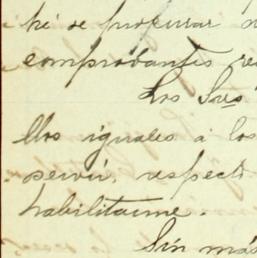 hé de procurar
comprobantes
Los Sres
llos iguales á los
servir, respecto
habilitarme.
Sin más